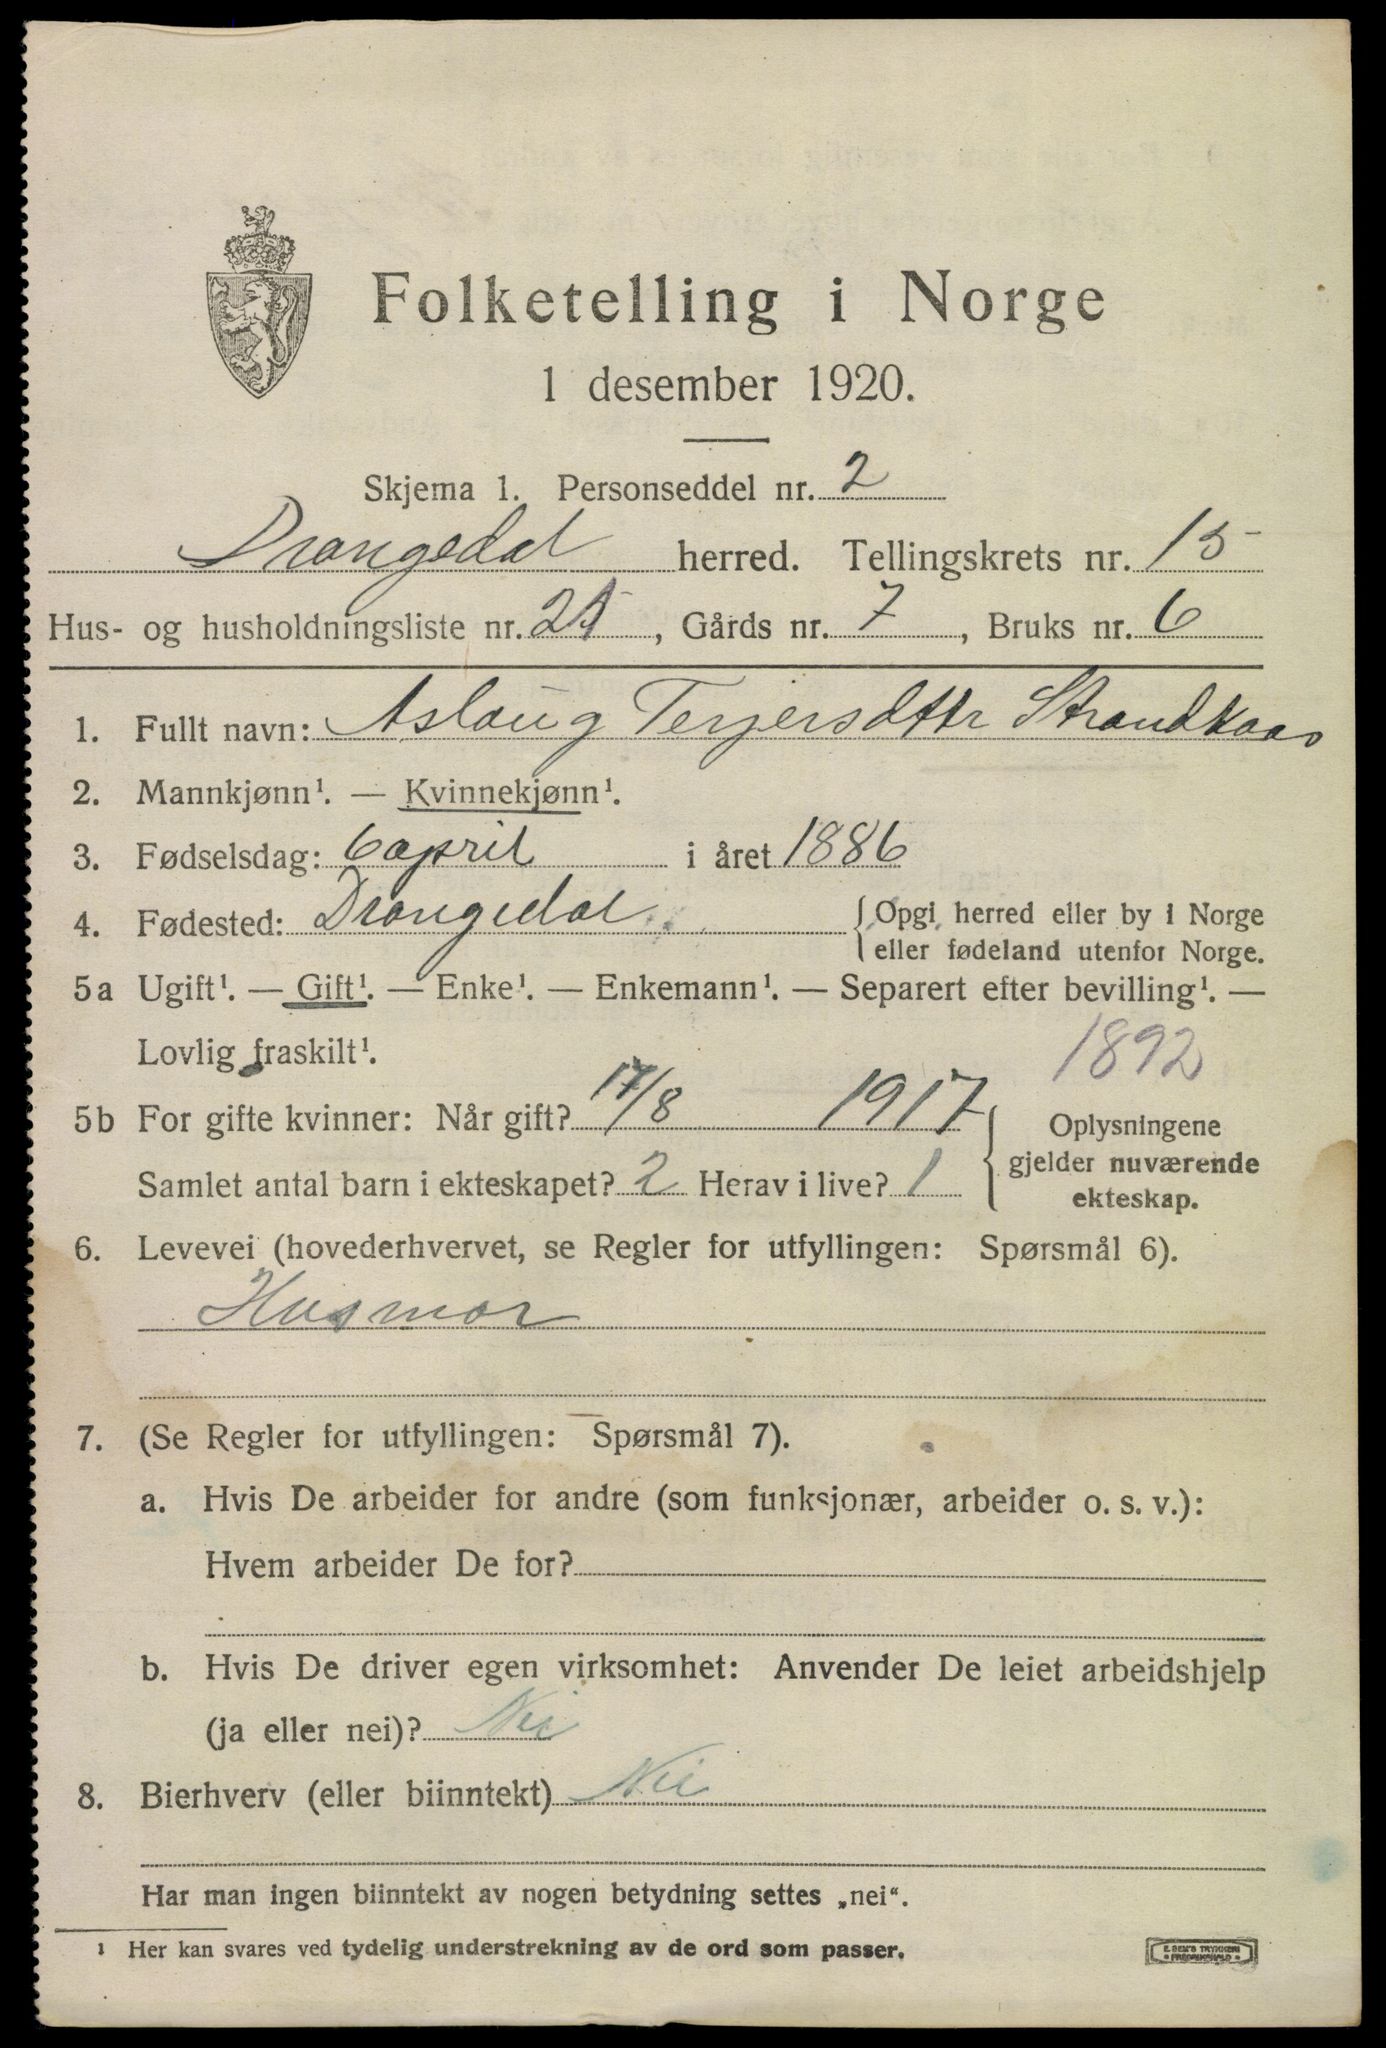 Folketelling i Norge
1 desember 1920.
Skjema 1. Personseddel nr. 2
Drangedal herred. Tellingskrets nr. 15
Hus- og husholdningsliste nr. 25, Gårds nr. 7, Bruks nr. 6
1. Fullt navn: Aslaug Terjersdttr Strandkaas
2. Mannkjønn¹. — Kvinnekjønn¹.
3. Fødselsdag: 6 april i året 1886
4. Fødested: Drangedal { Opgi herred eller by i Norge
eller fødeland utenfor Norge.
5a Ugift¹. — Gift¹. — Enke¹. — Enkemann¹. — Separert efter bevilling¹. —
Lovlig fraskilt¹. 1892
5b For gifte kvinner: Når gift? 17/8 1917 { Oplysningene
gjelder nuværende
ekteskap.
Samlet antal barn i ekteskapet? 2 Herav i live? 1
6. Levevei (hovederhvervet, se Regler for utfyllingen: Spørsmål 6).
Husmor
7. (Se Regler for utfyllingen: Spørsmål 7).
a. Hvis De arbeider for andre (som funksjonær, arbeider o. s. v.):
Hvem arbeider De for?
b. Hvis De driver egen virksomhet: Anvender De leiet arbeidshjelp
(ja eller nei)? Nei
8. Bierhverv (eller biinntekt) Nei
Har man ingen biinntekt av nogen betydning settes „nei“.
¹ Her kan svares ved tydelig understrekning av de ord som passer.
E. SEM'S TRYKKERI
FREDRIKSHALD